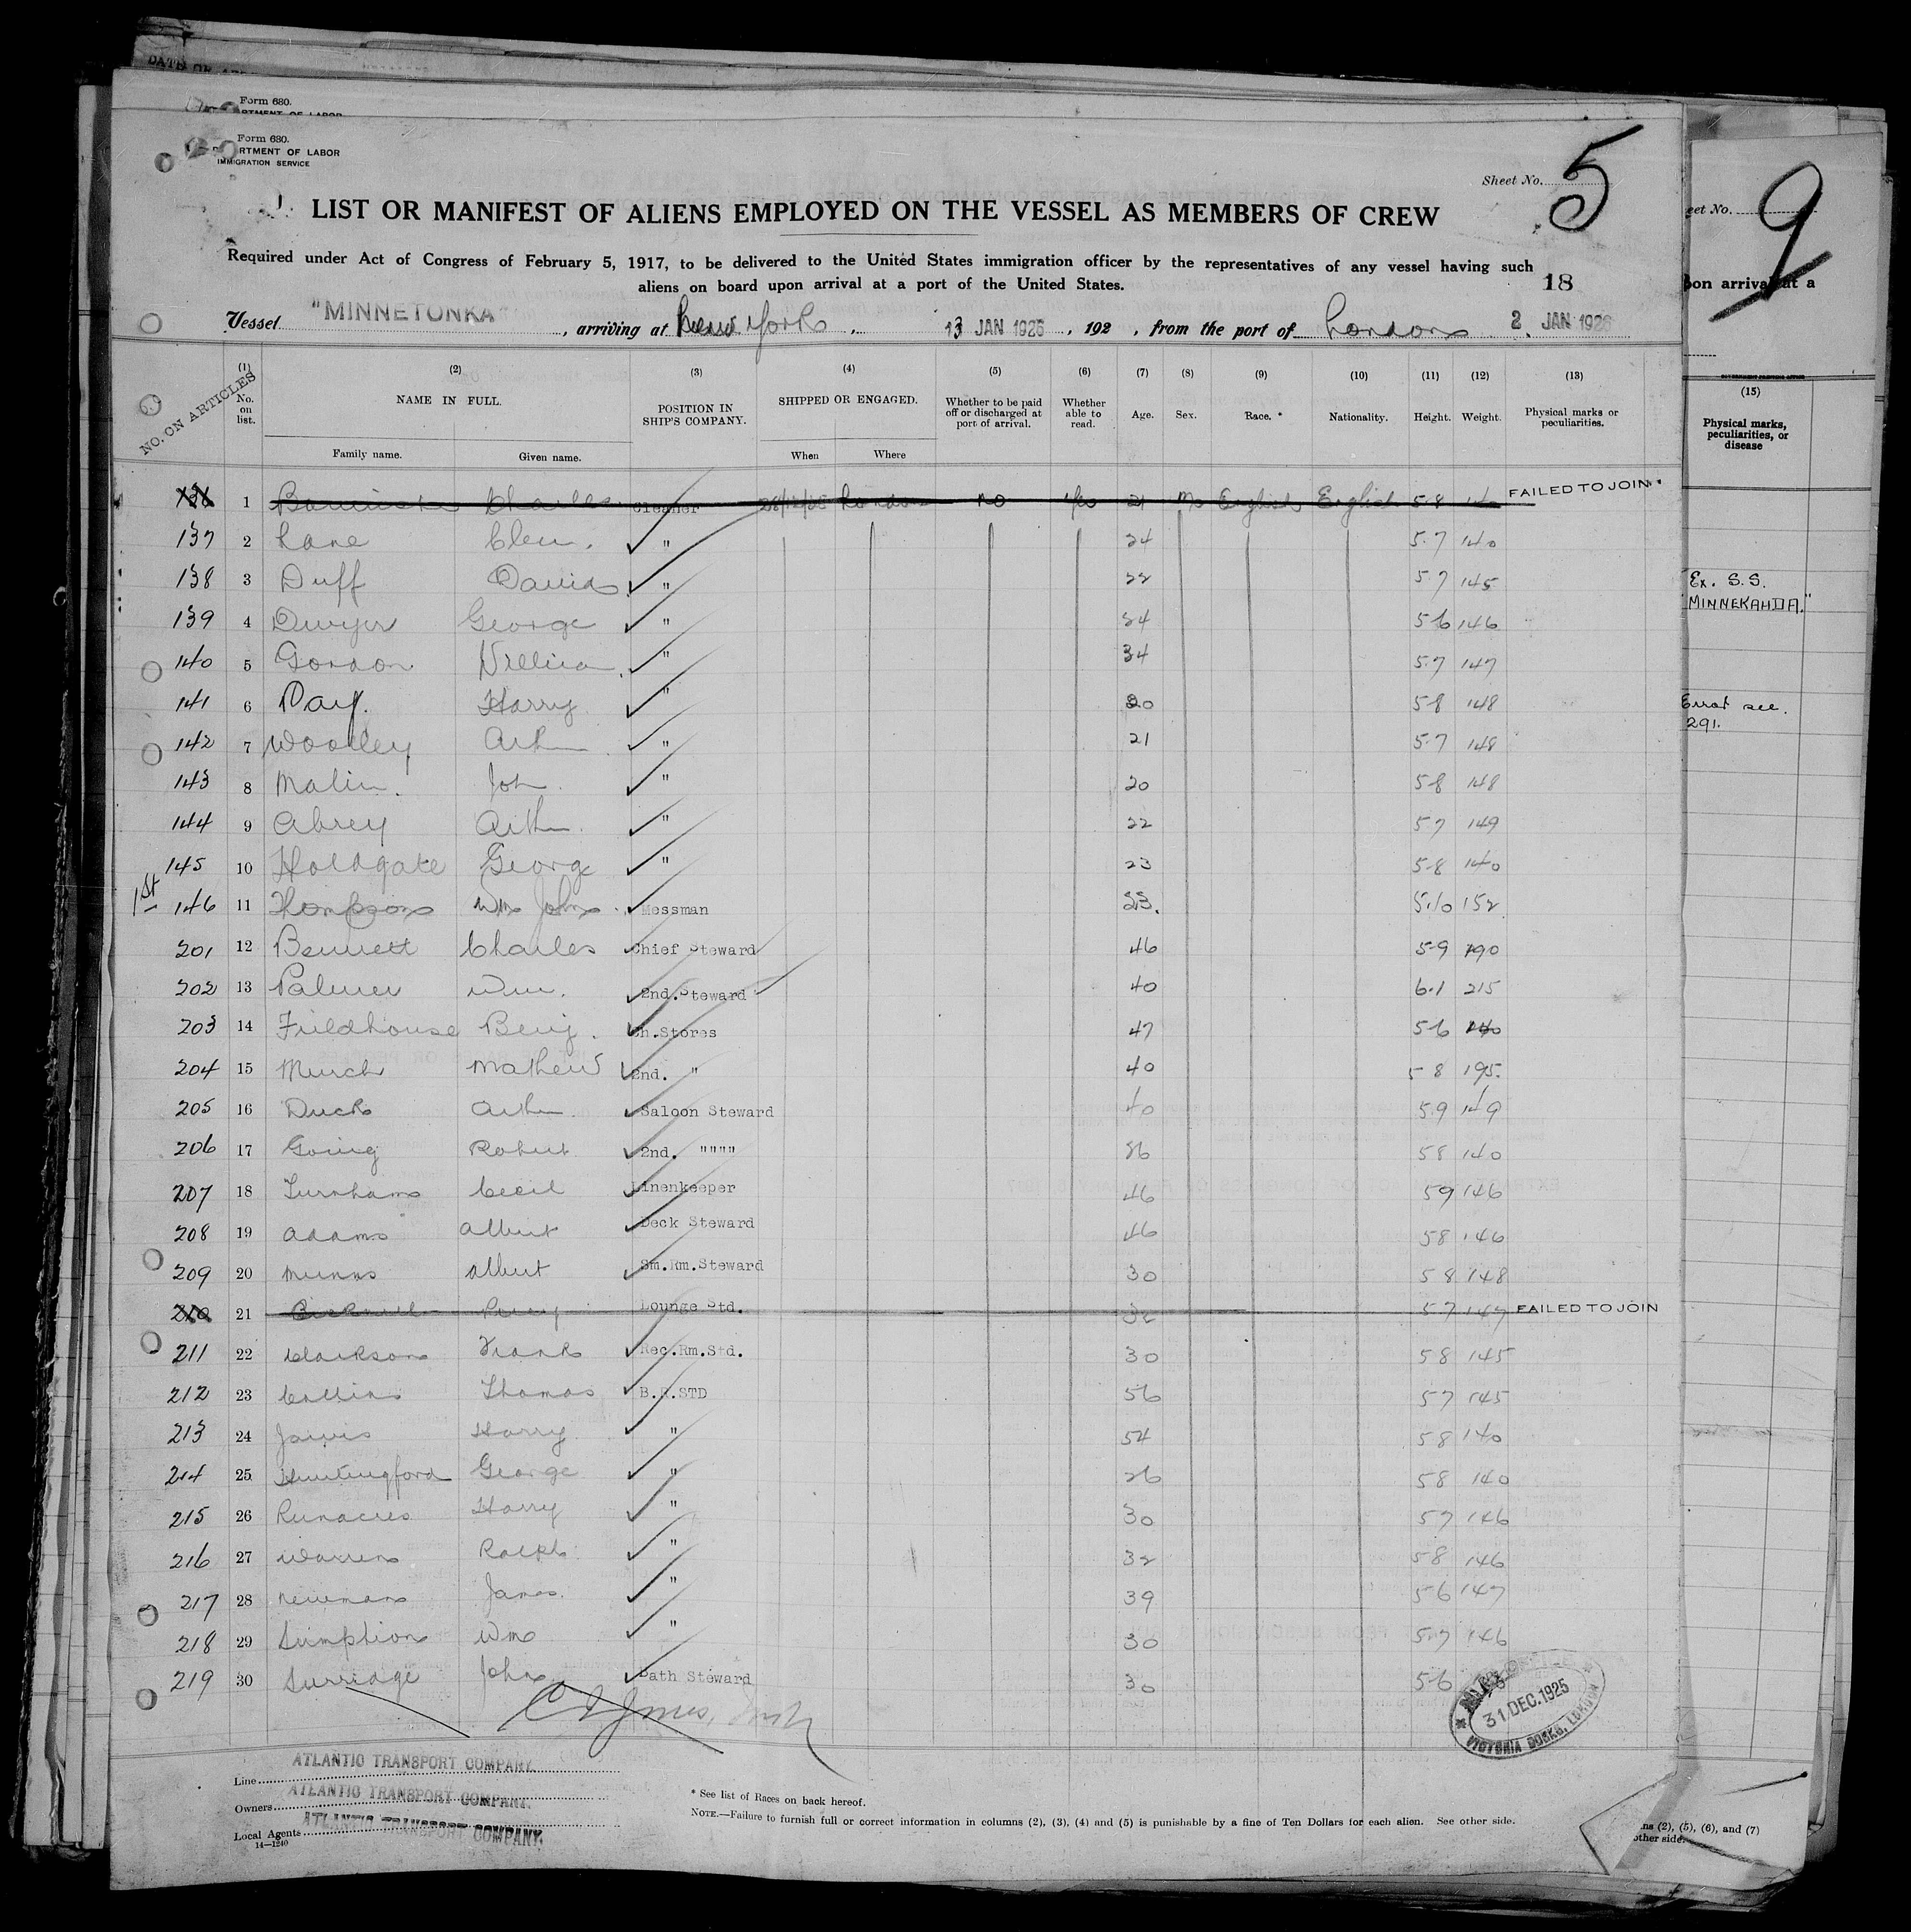 Form 680.
Form 680.
DEPARTMENT OF LABOR
IMMIGRATION SERVICE
Sheet No. 5
LIST OR MANIFEST OF ALIENS EMPLOYED ON THE VESSEL AS MEMBERS OF CREW
Required under Act of Congress of February 5, 1917, to be delivered to the United States immigration officer by the representatives of any vessel having such
aliens on board upon arrival at a port of the United States.
18
Vessel "MINNETONKA", arriving at New York, 13 JAN 1926, 192 , from the port of London 2 JAN 1926
NO. ON ARTICLES (1) No. on list. (2) NAME IN FULL. Family name. Given name. (3) POSITION IN SHIP'S COMPANY. (4) SHIPPED OR ENGAGED. When Where (5) Whether to be paid off or discharged at port of arrival. (6) Whether able to read. (7) Age. (8) Sex. (9) Race.* (10) Nationality. (11) Height. (12) Weight. (13) Physical marks or peculiarities.
136 1 Charles Cleaner London no yes 21 M English English 5-8 140 FAILED TO JOIN
137 2 Lane Clem. " 24 5-7 140
138 3 Duff David " 22 5-7 145
139 4 Dwyer George " 24 5-6 146
140 5 Gordon William " 34 5-7 147
141 6 Day. Harry " 20 5-8 148
142 7 Woolley Arthur " 21 5-7 148
143 8 Malin. John " 20 5-8 148
144 9 Abrey Arthur " 22 5-7 149
145 10 Holdgate George " 23 5-8 140
1st 146 11 Thompson Wm John Messman 23. 5.10 152
201 12 Bennett Charles Chief Steward 46 5-9 190
202 13 Palmer Wm. 2nd. Steward 40 6.1 215
203 14 Fieldhouse Benj. Ch.Stores 47 5-6 140
204 15 Murch Mathew 2nd. " 40 5-8 195
205 16 Duck Arthur Saloon Steward 40 5.9 149
206 17 Going Robert 2nd. """" 36 5 8 140
207 18 Turnham Cecil Linenkeeper 46 5 9 146
208 19 Adams Albert Deck Steward 46 5 8 146
209 20 Munns Albert Sm.Rm.Steward 30 5 8 148
210 21 Percy Lounge Std. 32 5-7 147 FAILED TO JOIN
211 22 Clarkson Frank Rec.Rm.Std. 30 5 8 145
212 23 Collins Thomas B.R.STD 56 5 7 145
213 24 Jarvis Harry " 54 5 8 140
214 25 Huntingford George " 26 5 8 140
215 26 Runacres Harry " 30 5 7 146
216 27 Warren Ralph " 32 5 8 146
217 28 Newman James " 39 5 6 147
218 29 Sumption Wm " 30 5.7 146
219 30 Surridge John Bath Steward 30 5-6
31 DEC. 1925
VICTORIA DOCKS, LONDON
Line ATLANTIC TRANSPORT COMPANY.
Owners ATLANTIC TRANSPORT COMPANY.
Local Agents ATLANTIC TRANSPORT COMPANY.
14—1240
* See list of Races on back hereof.
NOTE.—Failure to furnish full or correct information in columns (2), (3), (4) and (5) is punishable by a fine of Ten Dollars for each alien. See other side.
eet No. 9
pon arrival at a
(15)
Physical marks, peculiarities, or disease
Ex. S.S.
"MINNEKAHDA."
291.
ns (2), (5), (6), and (7)
other side.